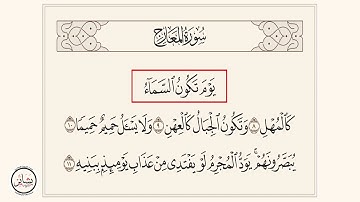 سُورَةُ المَعَارِجِ
يَوْمَ تَكُونُ السَّمَآءُ
كَالْمُهْلِ ٨ وَتَكُونُ الْجِبَالُ كَالْعِهْنِ ٩ وَلَا يَسْـَٔلُ حَمِيمٌ حَمِيمًا ١٠
يُبَصَّرُونَهُمْ ۚ يَوَدُّ الْمُجْرِمُ لَوْ يَفْتَدِى مِنْ عَذَابِ يَوْمِئِذٍۭ بِبَنِيهِ ١١